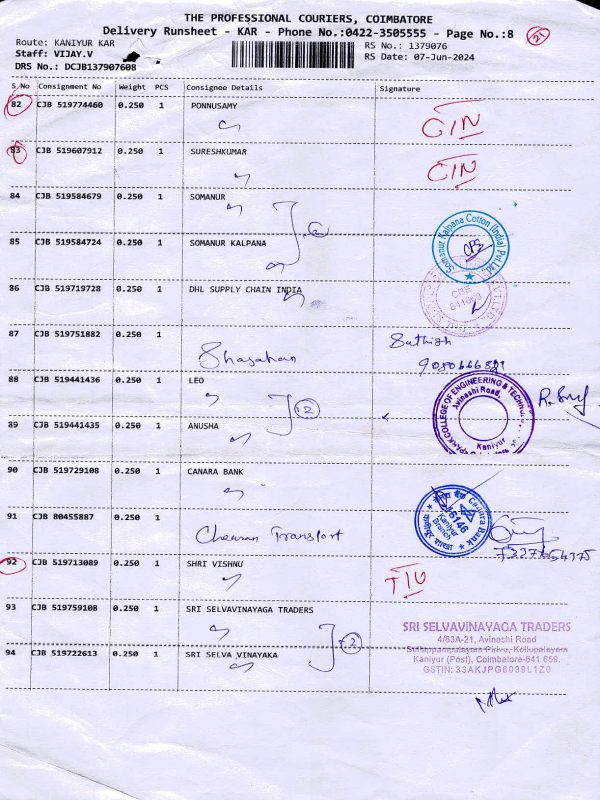 THE PROFESSIONAL COURIERS, COIMBATORE
Delivery Runsheet - KAR - Phone No.:0422-3505555 - Page No.:8
21
Route: KANIYUR KAR
RS No.: 1379076
Staff: VIJAY.V
RS Date: 07-Jun-2024
DRS No.: DCJB137907608
S.No Consignment No Weight PCS Consignee Details Signature
82 CJB 519774460 0.250 1 PONNUSAMY
CIN
83 CJB 519607912 0.250 1 SURESHKUMAR
CIN
84 CJB 519584679 0.250 1 SOMANUR
2
85 CJB 519584724 0.250 1 SOMANUR KALPANA
Somanur Kalpana Cotton (India) Pvt Ltd.
86 CJB 519719728 0.250 1 DHL SUPPLY CHAIN INDIA
CBE
87 CJB 519751882 0.250 1
Shajahan
Sathish
88 CJB 519441436 0.250 1 LEO
2
89 CJB 519441435 0.250 1 ANUSHA
COLLEGE OF ENGINEERING &
Avinashi Road,
Kaniyur
90 CJB 519729108 0.250 1 CANARA BANK
केनरा बैंक Canara Bank
6146
Kaniyur
Branch
91 CJB 80455887 0.250 1
Transport
92 CJB 519713089 0.250 1 SHRI VISHNU
93 CJB 519759108 0.250 1 SRI SELVAVINAYAGA TRADERS
2
94 CJB 519722613 0.250 1 SRI SELVA VINAYAKA
SRI SELVAVINAYAGA TRADERS
4/63A-21, Avinashi Road
Kaniyur (Post), Coimbatore-641 659.
GSTIN: 33AKJPG6039L1Z0